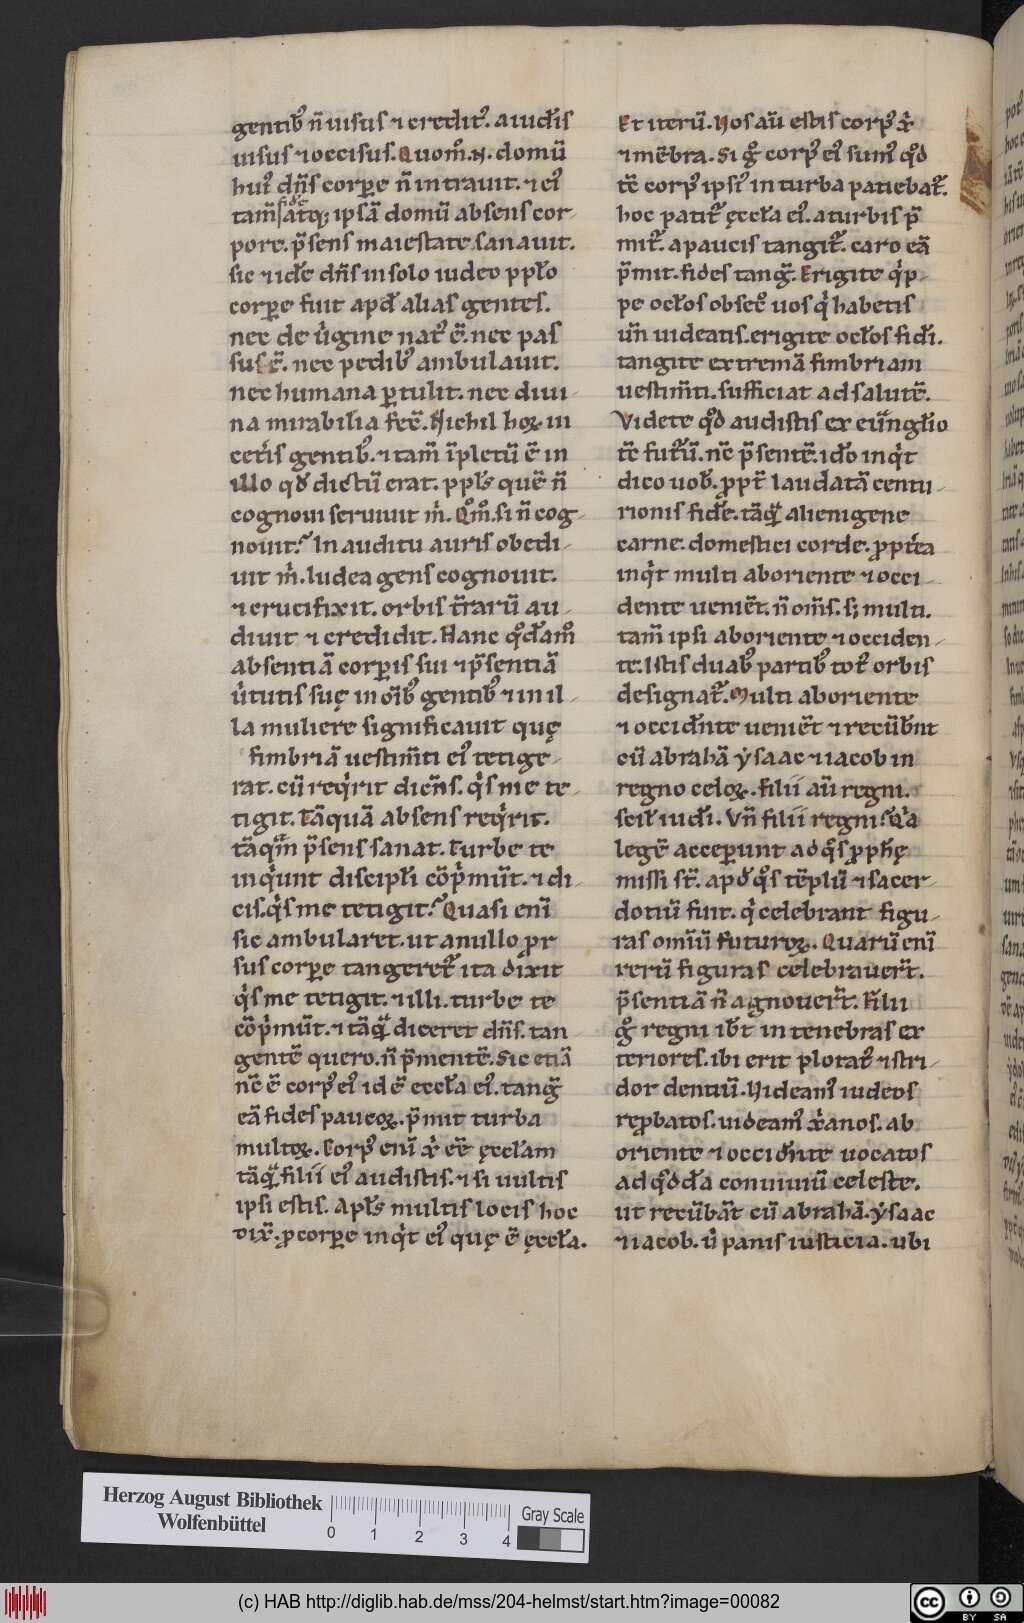 gentib᷒ n̄ uisus ⁊ credit᷒. a iud̄is
uisus ⁊ occisus. Quom̊. N. domū
hui᷒ dn̄s corpe n̄ intrauit. ⁊ ei᷒
tam̄ fide atq; ipsā domū absens cor-
pore. p̄sens maiestate sanauit.
sic ⁊ idē dn̄s in solo iudeo ppło
corpe fuit apd̄ alias gentes.
nec de u̇gine nat᷒ ē. nec pas
sus ē. nec pedib᷒ ambulauit.
nec humana ptulit. nec diui-
na mirabilia fec̄. Nichil hoꝝ in
cet̄is gentib᷒. ⁊ tam̄ īpletū ē in
illo qd̄ dictū erat. ppls̄ quē n̄
cognoui seruiuit m̄. Qm̊. si n̄ cog-
nouit? In auditu auris obedi-
uit m̄. Iudea gens cognouit.
⁊ crucifixit. orbis t̄rarū au-
diuit ⁊ credidit. Hanc qd̄am᷒
absentiā corpis sui ⁊ p̄sentiā
u̇tutis suę in oīb᷒ gentib᷒ ⁊ in il-
la muliere significauit quę
fimbriā uestim̄ti ei᷒ tetige-
rat. cū req̇rit dicen̄s. q̇s me te-
tigit. Tāquā absens req̇rit.
tāqm̄ p̄sens sanat. Turbe te
inq̇unt discipłi cōp̄mūt. ⁊ di-
cis. q̇s me tetigit? Quasi enī
sic ambularet. ut a nullo pr
sus corpe tangeret᷒ ita dixit
q̇s me tetigit. ⁊ illi. turbe te
cōp̄mūt. ⁊ tāq̄ diceret dn̄s. tan
gentē quero. n̄ p̄mentē. Sic etiā
nc̄ ē corp᷒ ei᷒ id ē eccła ei᷒. tangͣ
eā fides paucoꝝ. p̄mit turba
multoꝝ. Corp᷒ enī xp̄i eē ęccłam
tāq̄ filii ei᷒ audistis. ⁊ si uultis
ipsi estis. Apls̄ multis locis hoc
dix̄. p corpe inq̇t ei᷒ quę ē ęccła.
Et iterū. Vos aū estis corp᷒ xp̄i
⁊ mēbra. Si g̊ corp᷒ ei᷒ sum᷒ qd̄
tē corp᷒ ipsi᷒ in turba patiebat᷒.
hoc patit᷒ ęccła ei᷒. a turbis p̄
mit᷒. a paucis tangit᷒. caro eā
p̄mit. fides tangͣ. Erigite q̇p-
pe ocłos obsec̊ uos q̇ habetis
un̄ uideatis. erigite ocłos fid̄i.
tangite extremā fimbriam
uestim̄ti. sufficiat ad salutē.
Videte qd̄ audistis ex euͣngłio
tē futūrū. nc̄ p̄sentē. id̄o inq̇t
dico uob̄. propt̄ laudatā centu-
rionis fidē. tāq̄ alienigene
carne. domestici corde. propt̄ea
inq̇t multi ab oriente ⁊ occi-
dente uenient. n̄ om̄s. s; multi.
tam̄ ipsi ab oriente ⁊ occiden-
te. Istis duab᷒ partib᷒ tot᷒ orbis
designat᷒. Multi ab oriente
⁊ occid̄nte ueniēt ⁊ recūb̄nt
cū abrahā ysaac ⁊ iacob in
regno celoꝝ. Filii aū regni.
scił iud̄i. Vn̄ filii regni? Qͥa
legē acceperunt ad q̊s proph̄ę
missi st̄. apd̄ q̊s tēplū ⁊ sacer-
dotiū fuit. q̇ celebrant figu-
ras omīū futuroꝝ. Quarū enī
rerū figuras celebrauer̄t.
p̄sentiā n̄ agnouer̄t. Filii
g̊ regni ibt̄ in tenebras ex
teriores. ibi erit plorat᷒ ⁊ stri-
dor dentiū. Videam᷒ iudeos
reprobatos. uideam᷒ xp̄ianos. ab
oriente ⁊ occid̄nte uocatos
ad qd̄d̄a conuiuiū celeste.
ut recūbāt cū abrahā. ysaac
⁊ iacob. u̇ panis iusticia. ubi
Herzog August Bibliothek
Wolfenbüttel
0 1 2 3 4
Gray Scale
(c) HAB http://diglib.hab.de/mss/204-helmst/start.htm?image=00082
cc BY SA